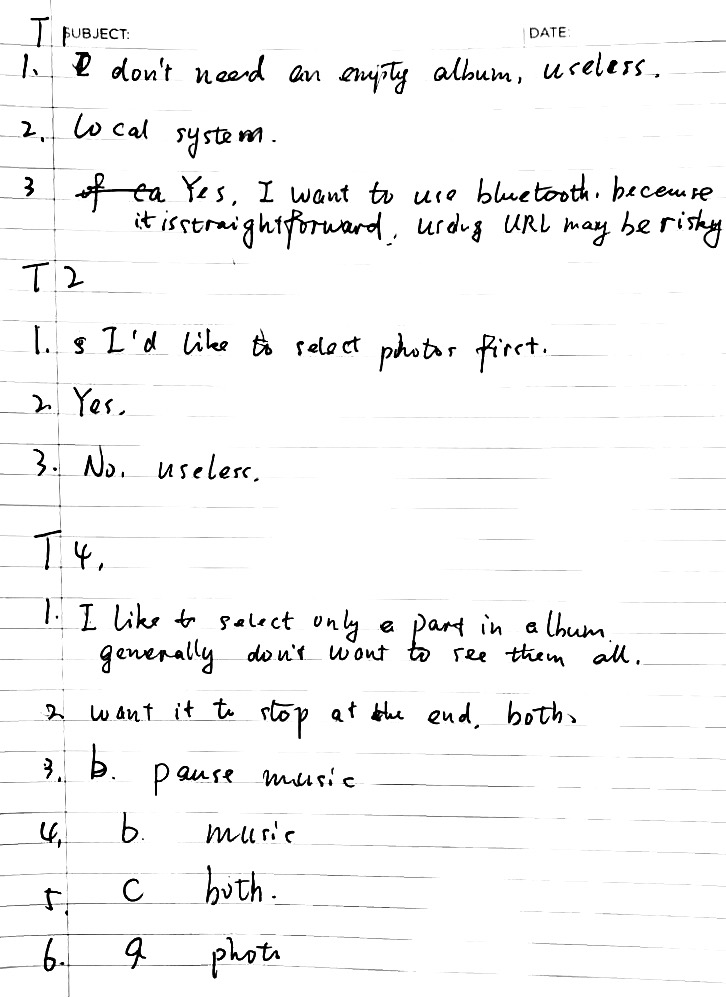 T 1 SUBJECT: DATE:
1. I don't need an empty album, useless.
2. local system.
3 of ca Yes, I want to use bluetooth. becemise
it is straightforward, using URL may be risky
T 2
1. s I'd like to select photos first.
2. Yes.
3. No. useless.
T 4.
1. I like to select only a part in album
generally don't want to see them all.
2 want it to stop at the end, both.
3. b. pause music
4. b. music
5. C both.
6. a phot